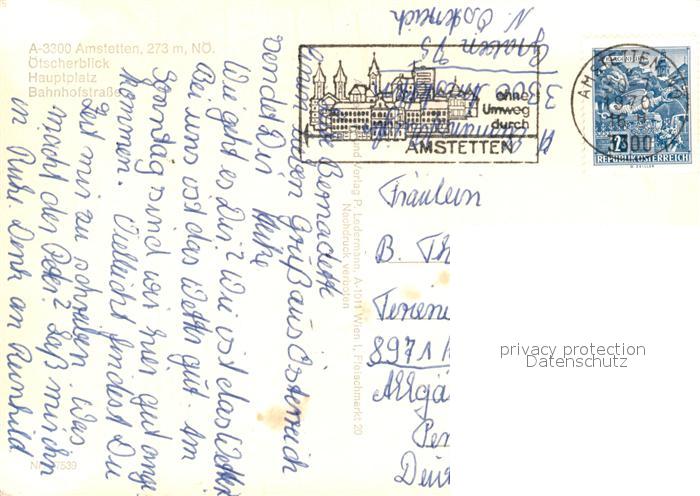 A-3300 Amstetten, 273 m, NÖ.
Ötscherblick
Hauptplatz
Bahnhofstraße
Liebe Bernadette
einen lieben Gruß aus Österreich
sendet Dir Heike
Wie geht es Dir? Wie ist das Wetter
Bei uns ist das Wetter gut. Am
Sonntag sind wir hier gut ange
kommen. Vielleicht findest Du
Zeit mir zu schreiben. Was
macht der Peter? Laß mir ihn
in Ruhe Denk an Runhild
Nr. 7539
Verlag P. Ledermann, A-1011 Wien I, Fleischmarkt 20
Nachdruck verboten
A
3300 Amstetten
Graben 75
N. Österreich
ohne
Umweg
durch
AMSTETTEN
AMSTETTEN
REPUBLIK ÖSTERREICH
Fräulein
B. Th
8971
Allgä
Deu
privacy protection
Datenschutz